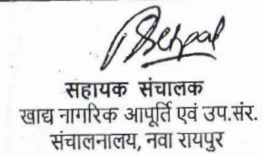 सहायक संचालक
खाद्य नागरिक आपूर्ति एवं उप.संर.
संचालनालय, नवा रायपुर